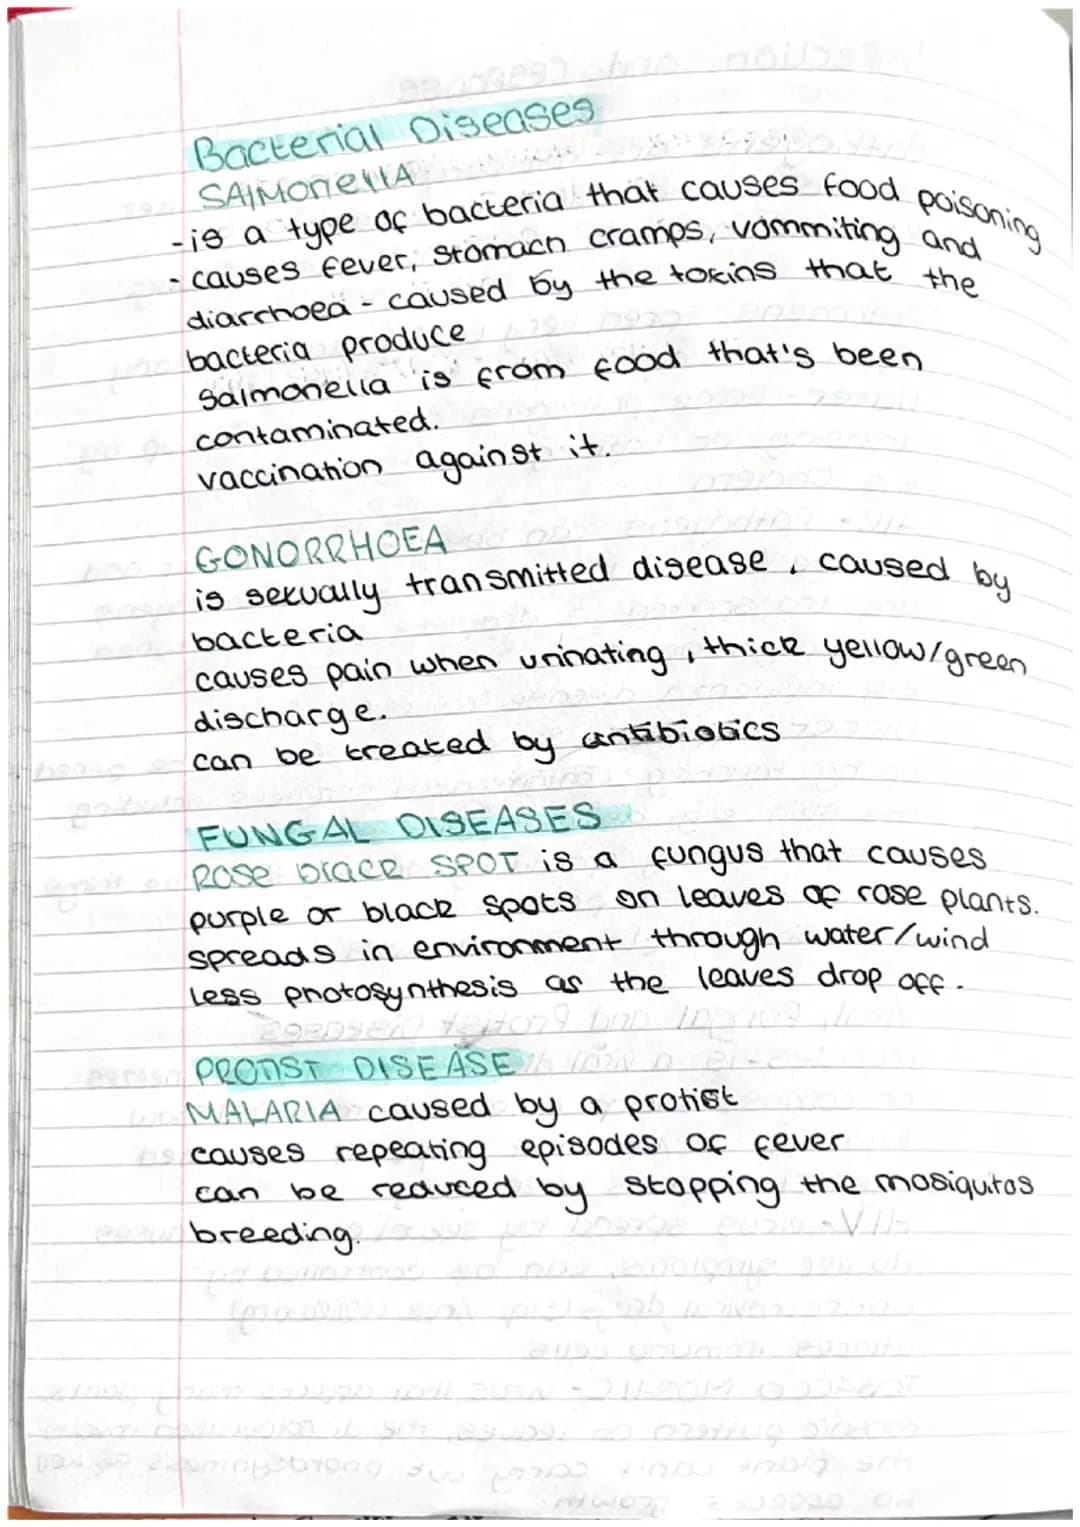 Bacterial Diseases
SAlMonellA
- is a type of bacteria that causes food poisoning
- causes fever, stomach cramps, vommiting and
diarrhoea - caused by the toxins that the
bacteria produce
Salmonella is from food that's been
contaminated.
vaccination against it.
GONORRHOEA
is sexually transmitted disease, caused by
bacteria
causes pain when urinating, thick yellow/green
discharge.
can be treated by antibiotics
FUNGAL DISEASES
ROSE black SPOT is a fungus that causes
purple or black spots on leaves of rose plants.
spreads in environment through water/wind
Less photosynthesis as the leaves drop off.
PROTIST DISEASE
MALARIA caused by a protist
causes repeating episodes of fever
can be reduced by stopping the mosiquitos
breeding.